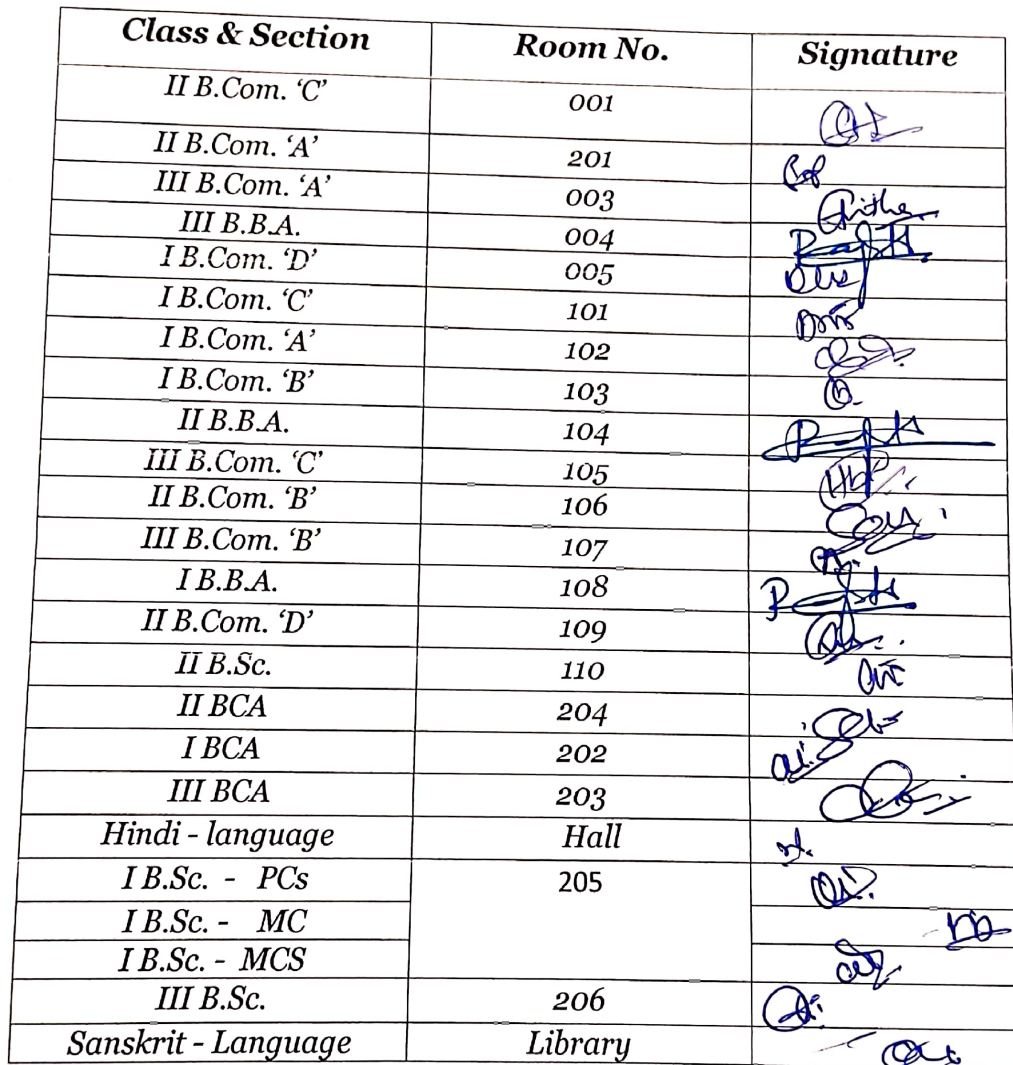 Class & Section Room No. Signature
II B.Com. ‘C’ 001
II B.Com. ‘A’ 201
III B.Com. ‘A’ 003
III B.B.A. 004
I B.Com. ‘D’ 005
I B.Com. ‘C’ 101
I B.Com. ‘A’ 102
I B.Com. ‘B’ 103
II B.B.A. 104
III B.Com. ‘C’ 105
II B.Com. ‘B’ 106
III B.Com. ‘B’ 107
I B.B.A. 108
II B.Com. ‘D’ 109
II B.Sc. 110
II BCA 204
I BCA 202
III BCA 203
Hindi - language Hall
I B.Sc. - PCs 205
I B.Sc. - MC
I B.Sc. - MCS
III B.Sc. 206
Sanskrit - Language Library